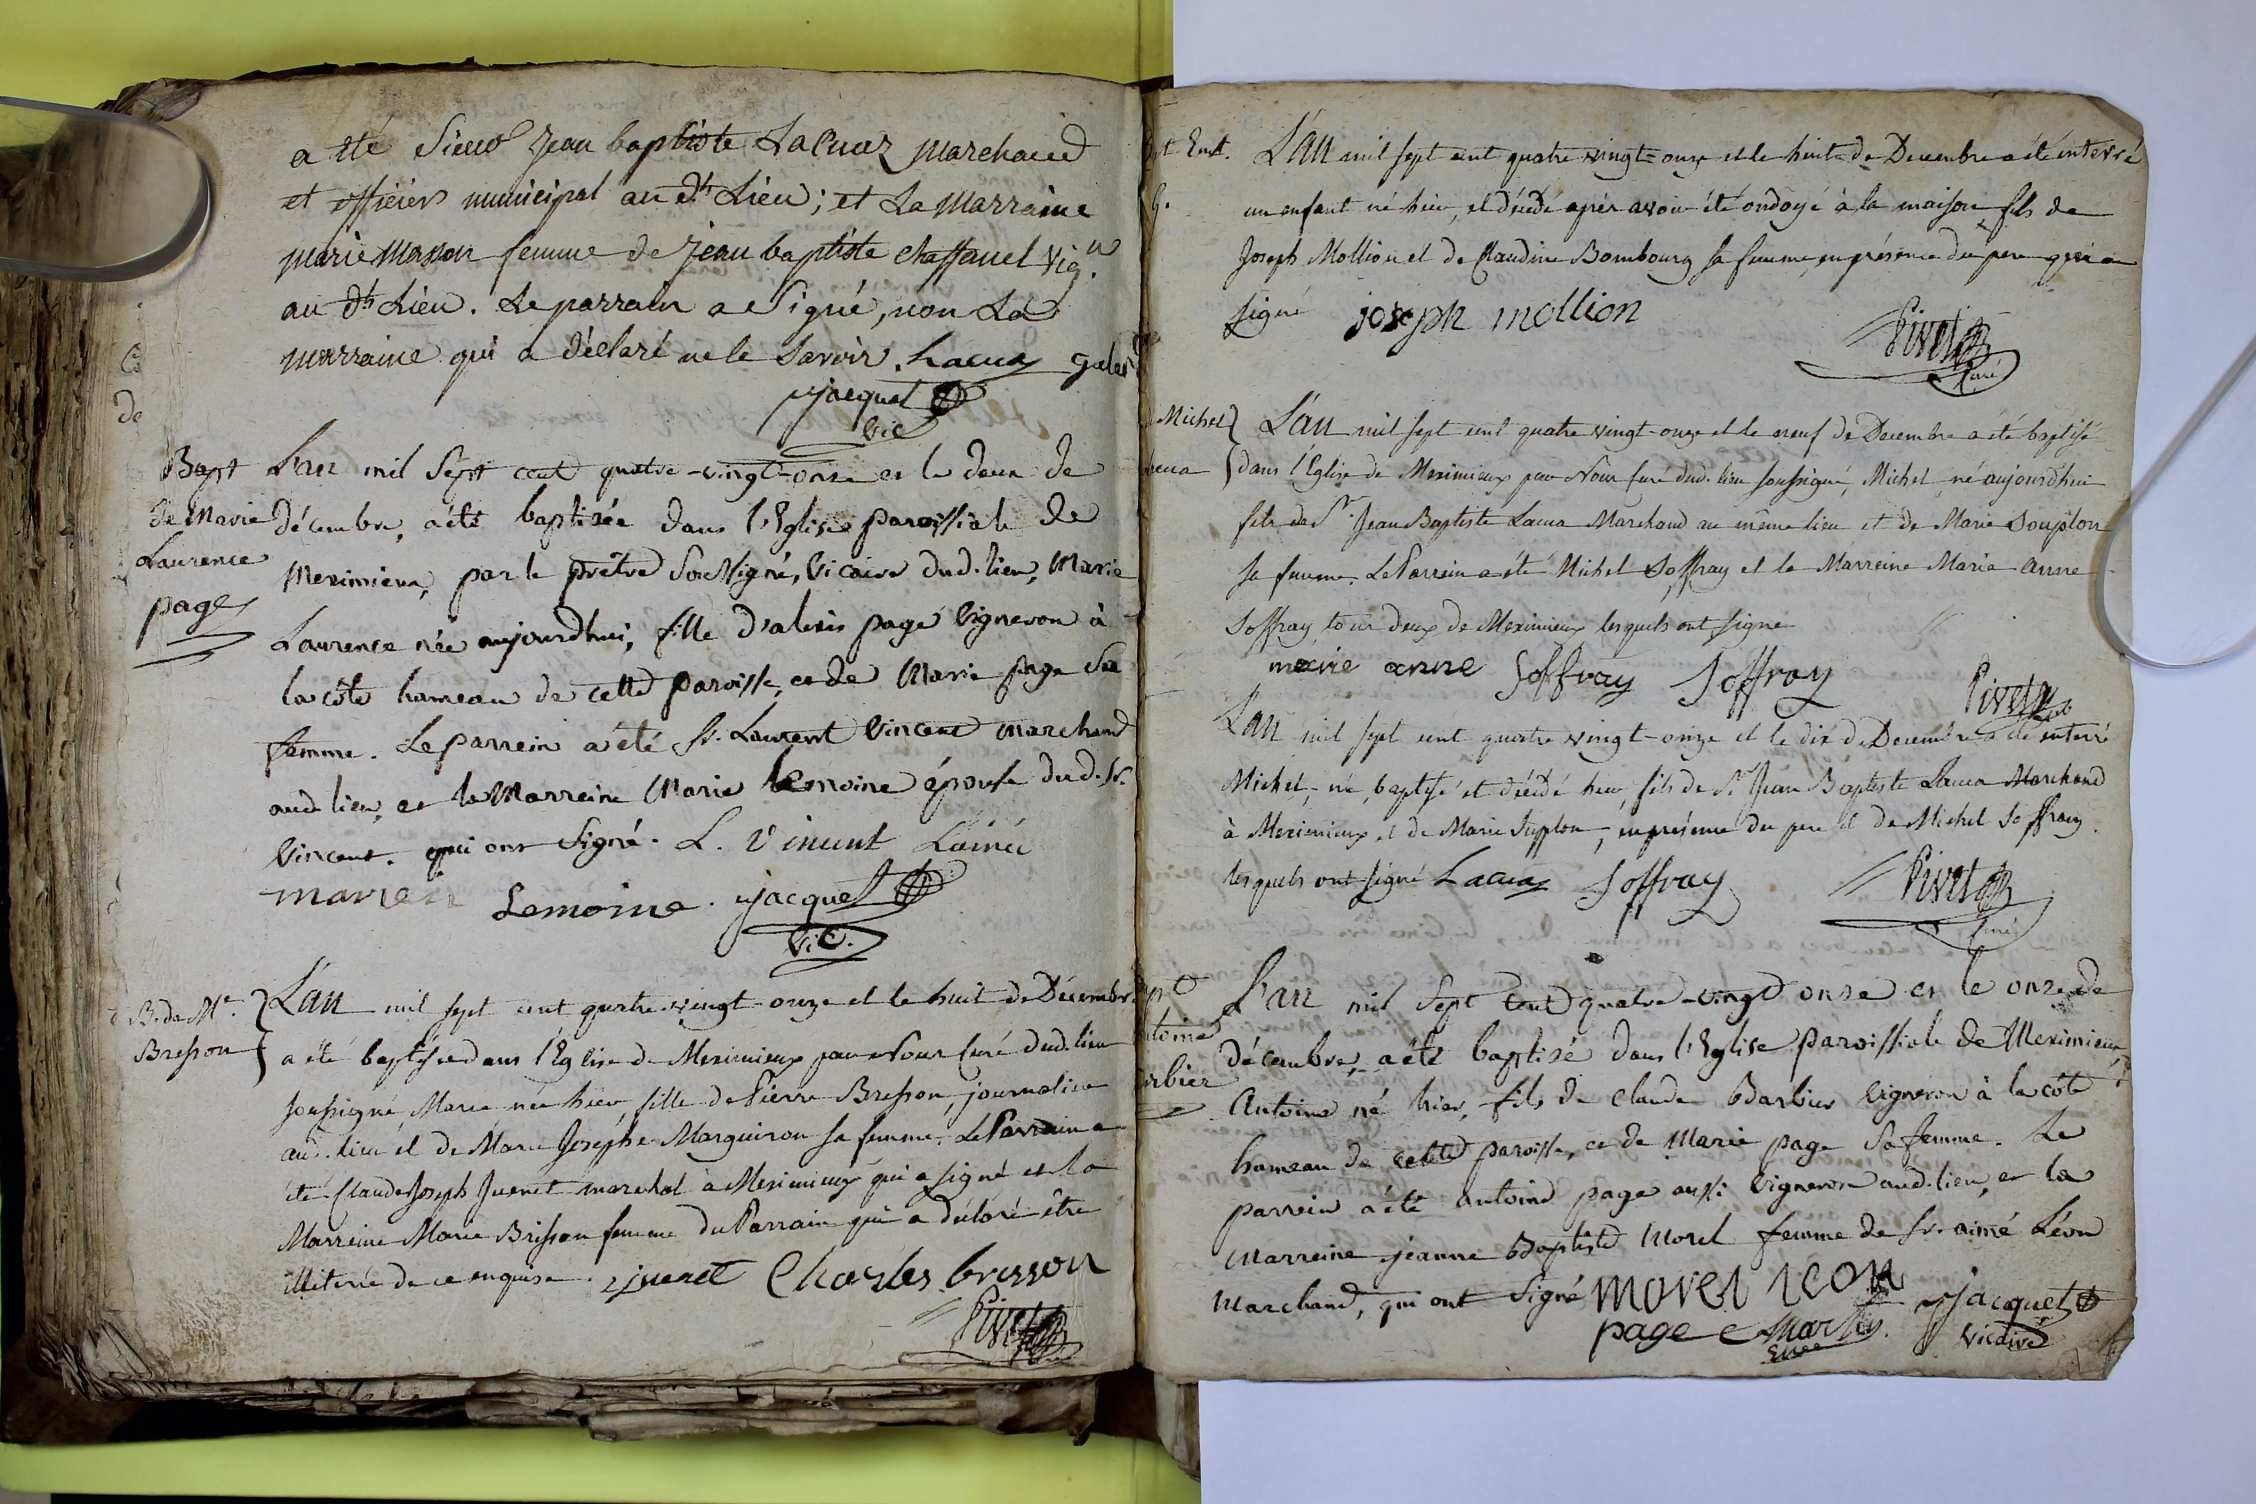 a été Sieur Jean baptiste Lacuaz marchand
et officier municipal au dt. Lieu; et La marraine
marie masson femme de jean baptiste Chaffanel vig.n
au dt. Lieu. Le parrain a Signé, non La
marraine qui a déclaré ne le Savoir. Lacua
jacquet
vic
Bapt
de Marie
Laurence
page
L'an mil Sept cent quatre-vingt-onze et le deux de
décembre, a été baptisée dans l'Eglise paroissiale de
Meximieux, par le prêtre Soussigné, Vicaire dud. lieu, Marie
Laurence née aujourdhui, fille d'alexis page Vigneron à
la côte hameau de cette paroisse, et de Marie page Sa
femme. Le parrein a été Sr. Laurent Vincent Marchand
aud. lieu, et la Marreine Marie Lemoine épouse dud. Sr.
Vincent. qui ont Signé. L. Vincent Lainé
marie Lemoine. jacquet
vic.
B. de Me.
Bresson
L'an mil sept cent quatre-vingt-onze et le huit de Décembre
a été baptisée dans l'Eglise de Meximieux par Nous Curé dud. lieu
soussigné Marie née hier, fille de Pierre Bresson, journalier
aud. lieu et de Marie Josephe Marguiron sa femme. Le Parrain a
été Claude Joseph Juenet marechal à Meximieux qui a signé et la
Marreine Marie Brisson femme du Parrain qui a déclaré être
illiterée de ce enquise. juenet Charles brisson
Pivet
Ent.
L'an mil sept cent quatre vingt-onze et le huit de Decembre a été enterré
un enfant né hier, et décédé après avoir été ondoyé à la maison, fils de
Joseph Mollion et de Claudine Bombourg sa femme, en présence du pere qui a
signé joseph mollion
Pivet
Curé
Michel
L'an mil sept cent quatre vingt-onze et le neuf de Decembre a été baptisé
dans l'Eglise de Meximieux par Nous Curé dud. lieu soussigné, Michel, né aujourd'hui
fils de Sr. Jean Baptiste Lacua Marchand au même lieu et de Marie Souplon
sa femme. Le Parrein a été Michel Soffray et la Marreine Marie Anne
Soffray tous deux de Meximieux lesquels ont signé
marie anne Soffray Soffray
Pivet
L'an mil sept cent quatre vingt-onze et le dix de Decembre a été enterré
Michel, né, baptisé et décédé hier, fils de Sr. Jean Baptiste Lacua Marchand
à Meximieux et de Marie Supplon, en présence du pere et de Michel Soffray.
lesquels ont signé Lacua Soffray
Pivet
Curé
L'an mil Sept Cent quatre-vingt onze et le onze de
décembre, a été baptisé dans l'Eglise paroissiale de Meximieux,
Antoine né hier, fils de Claude Barbier Vigneron à la côte
hameau de cette paroisse, et de Marie page Sa femme. Le
parrein a été antoine page aussi Vigneron aud. lieu, et la
Marreine jeanne Baptiste Morel femme de Sr. aimé Léon
Marchand, qui ont Signé morel leon
page jacquet
vicaire